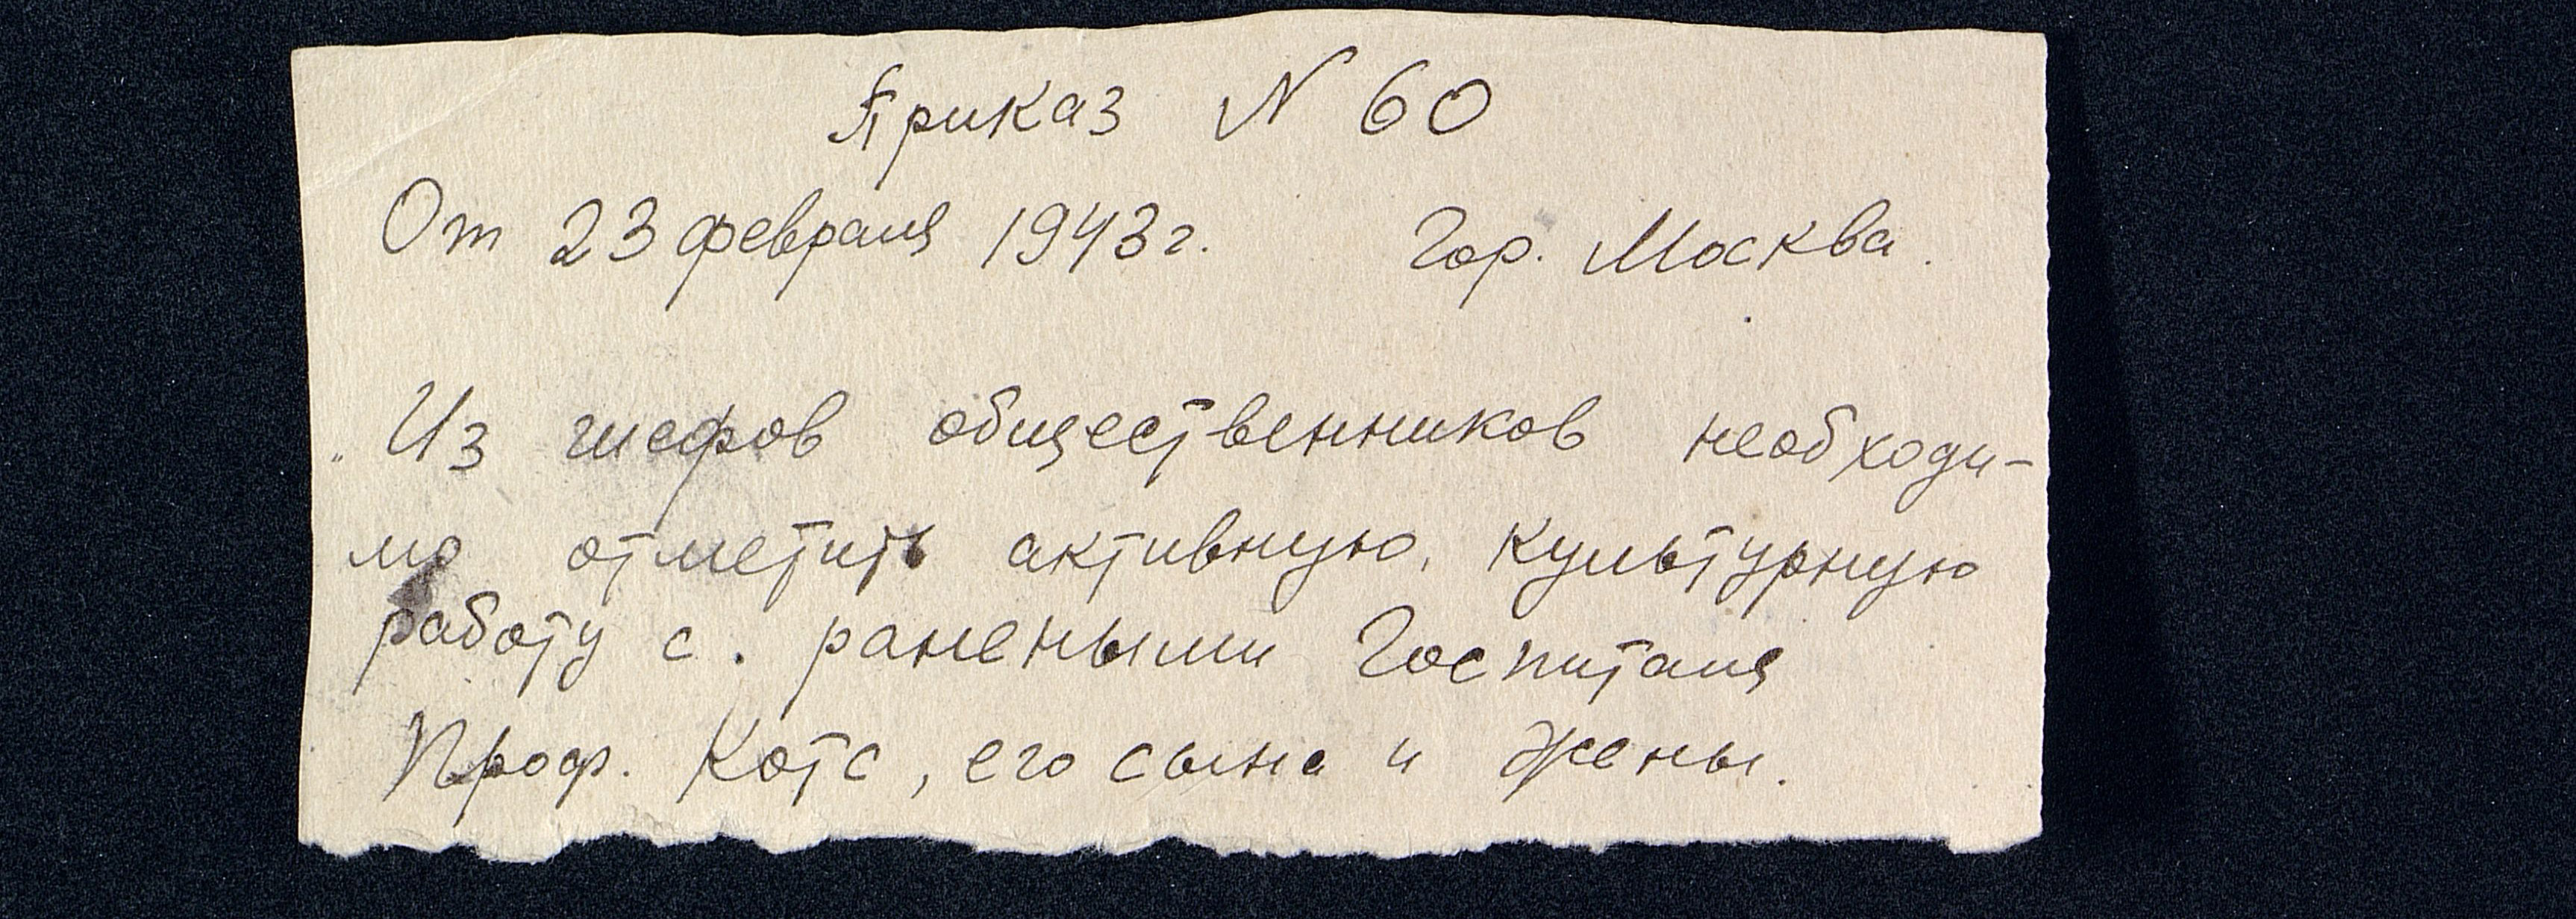 Приказ N 60
От 23 февраля 1943 г. Гор. Москва.
„Из шефов общественников необходи-
мо отметить активную, культурную
работу с. ранеными Госпиталя
Проф. Котс, его сына и жены.